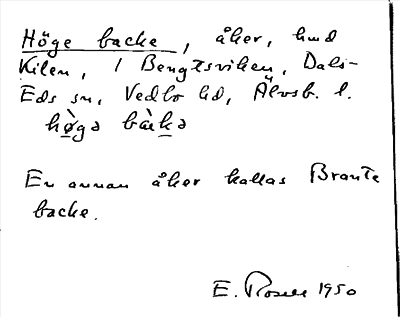 Höge backe, åker, hmd
Kilen, 1 Bengtsviken, Dals-
Eds sn, Vedbo hd, Älvsb. l.
hø̀gə bàkə
En annan åker kallas Brante
backe.
E. Rosell 1950